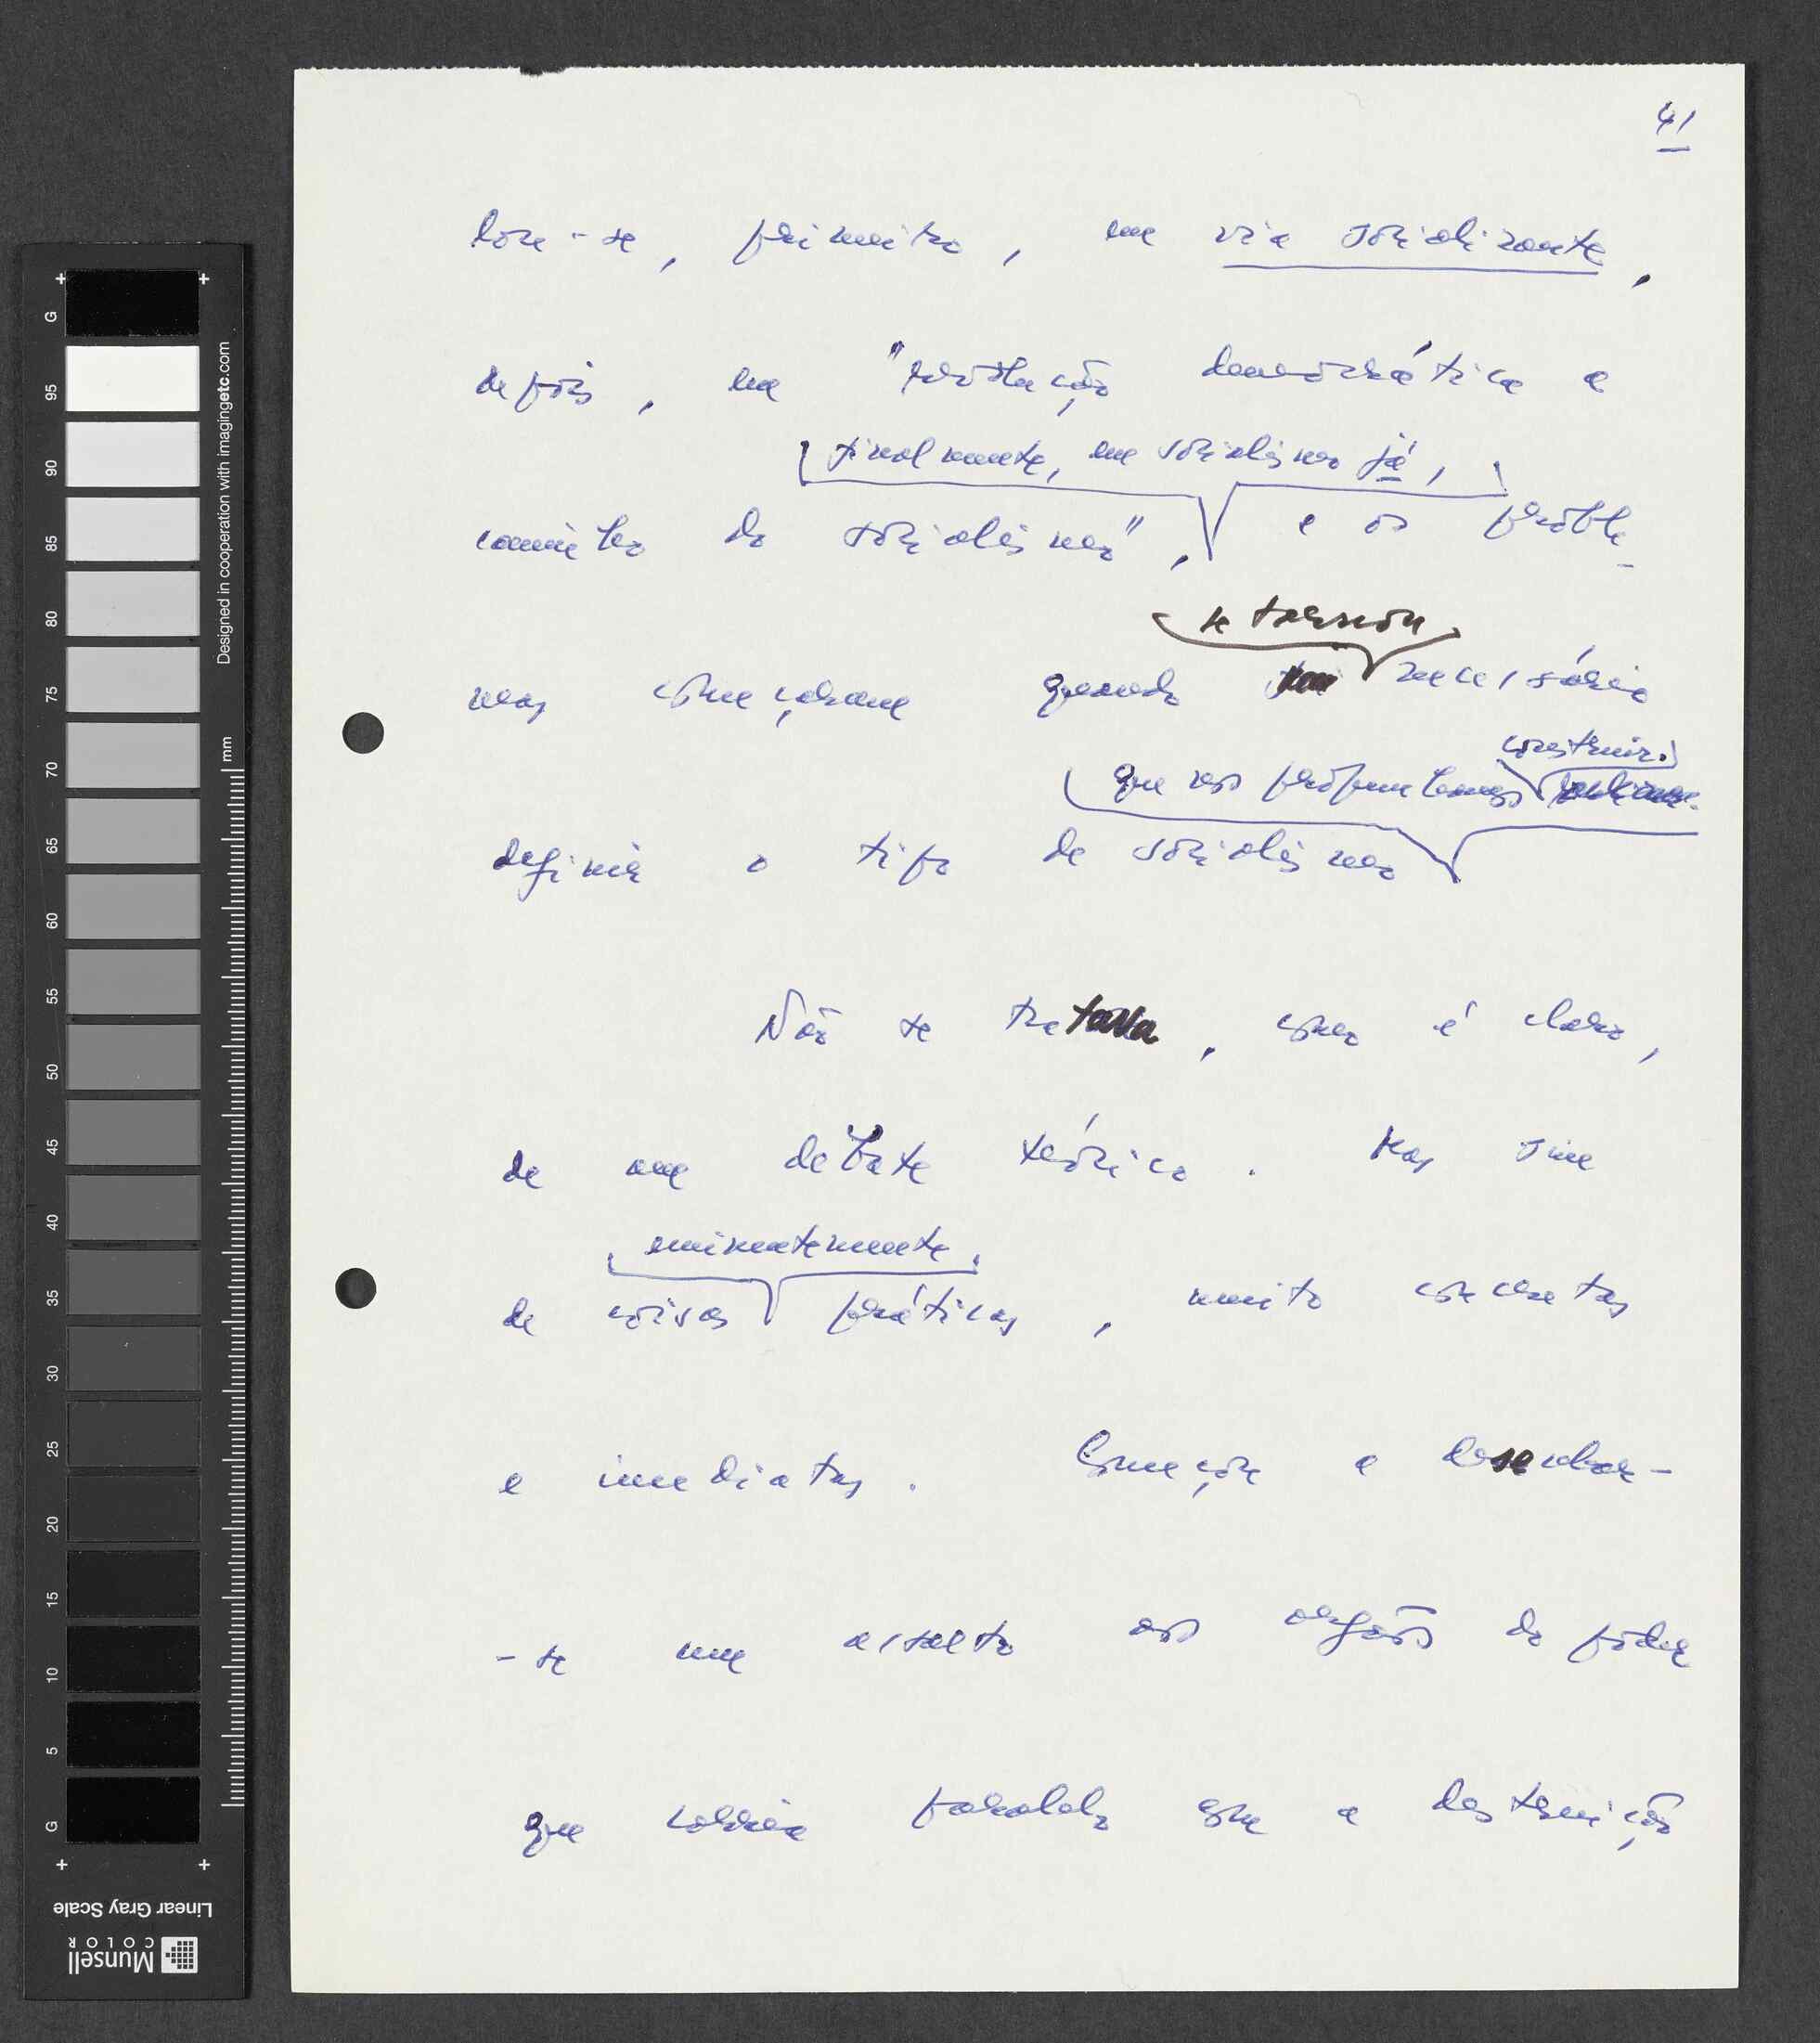 41
lou-se, primeiro, em via socializante,
depois, em "revolução democrática a
finalmente, em socialismo já,
caminho do socialismo", e os proble-
se tornou
mas começaram quando necessário
construir.
que nos propunhamos
definir o tipo de socialismo
Não se tratava, como é claro,
de um debate teórico. Mas sim
eminentemente
de coisas práticas, muito concretas
e imediatas. Começou a desenhar-
-se um assalto aos orgãos do poder
que corria paralelo com a destruição
G
95
90
85
80
75
70
65
60
55
50
45
40
35
30
25
20
15
10
5
G
mm
Designed in cooperation with imagingetc.com
Linear Gray Scale
Munsell
COLOR